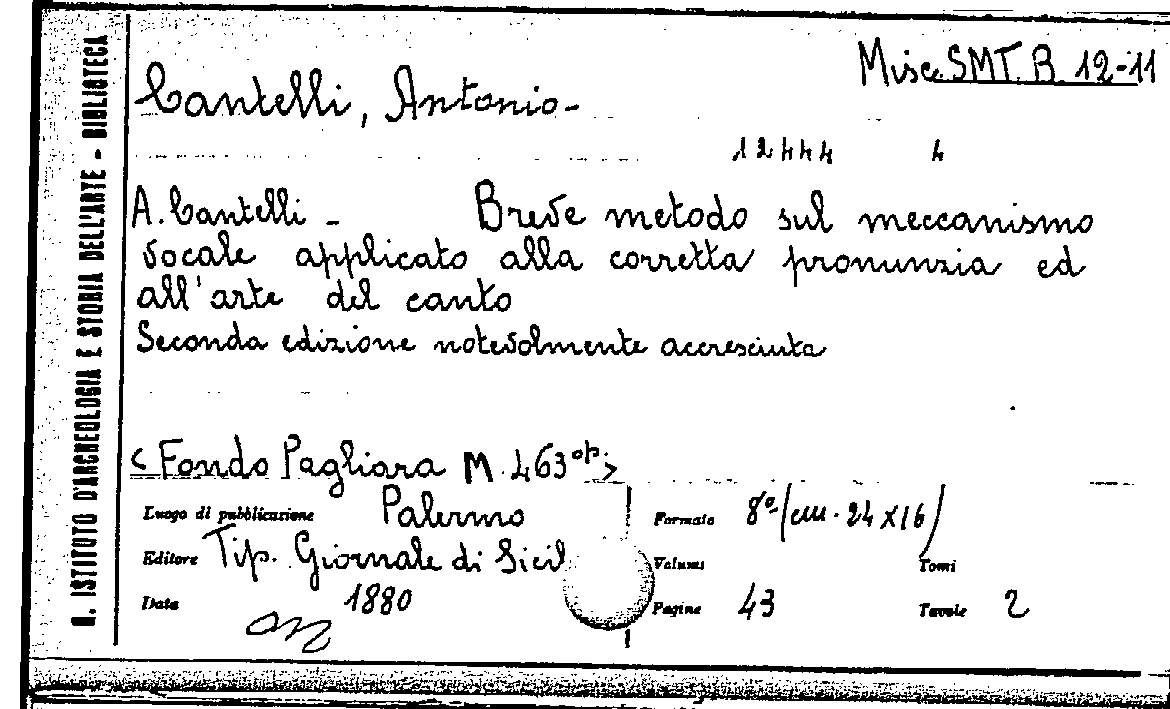 Misc. SMT. B. 12-11
Cantelli, Antonio-
12444 4
A. Cantelli - Breve metodo sul meccanismo
vocale applicato alla corretta pronunzia ed
all'arte del canto
Seconda edizione notevolmente accresciuta
< Fondo Pagliara M. 463 op. >
Luogo di pubblicazione Palermo
Formato 8º (cm. 24 x 16)
Editore Tip. Giornale di Sicil
Volume
Tomi
Data 1880
Pagine 43
Tavole 2
R. ISTITUTO D'ARCHEOLOGIA E STORIA DELL'ARTE - BIBLIOTECA